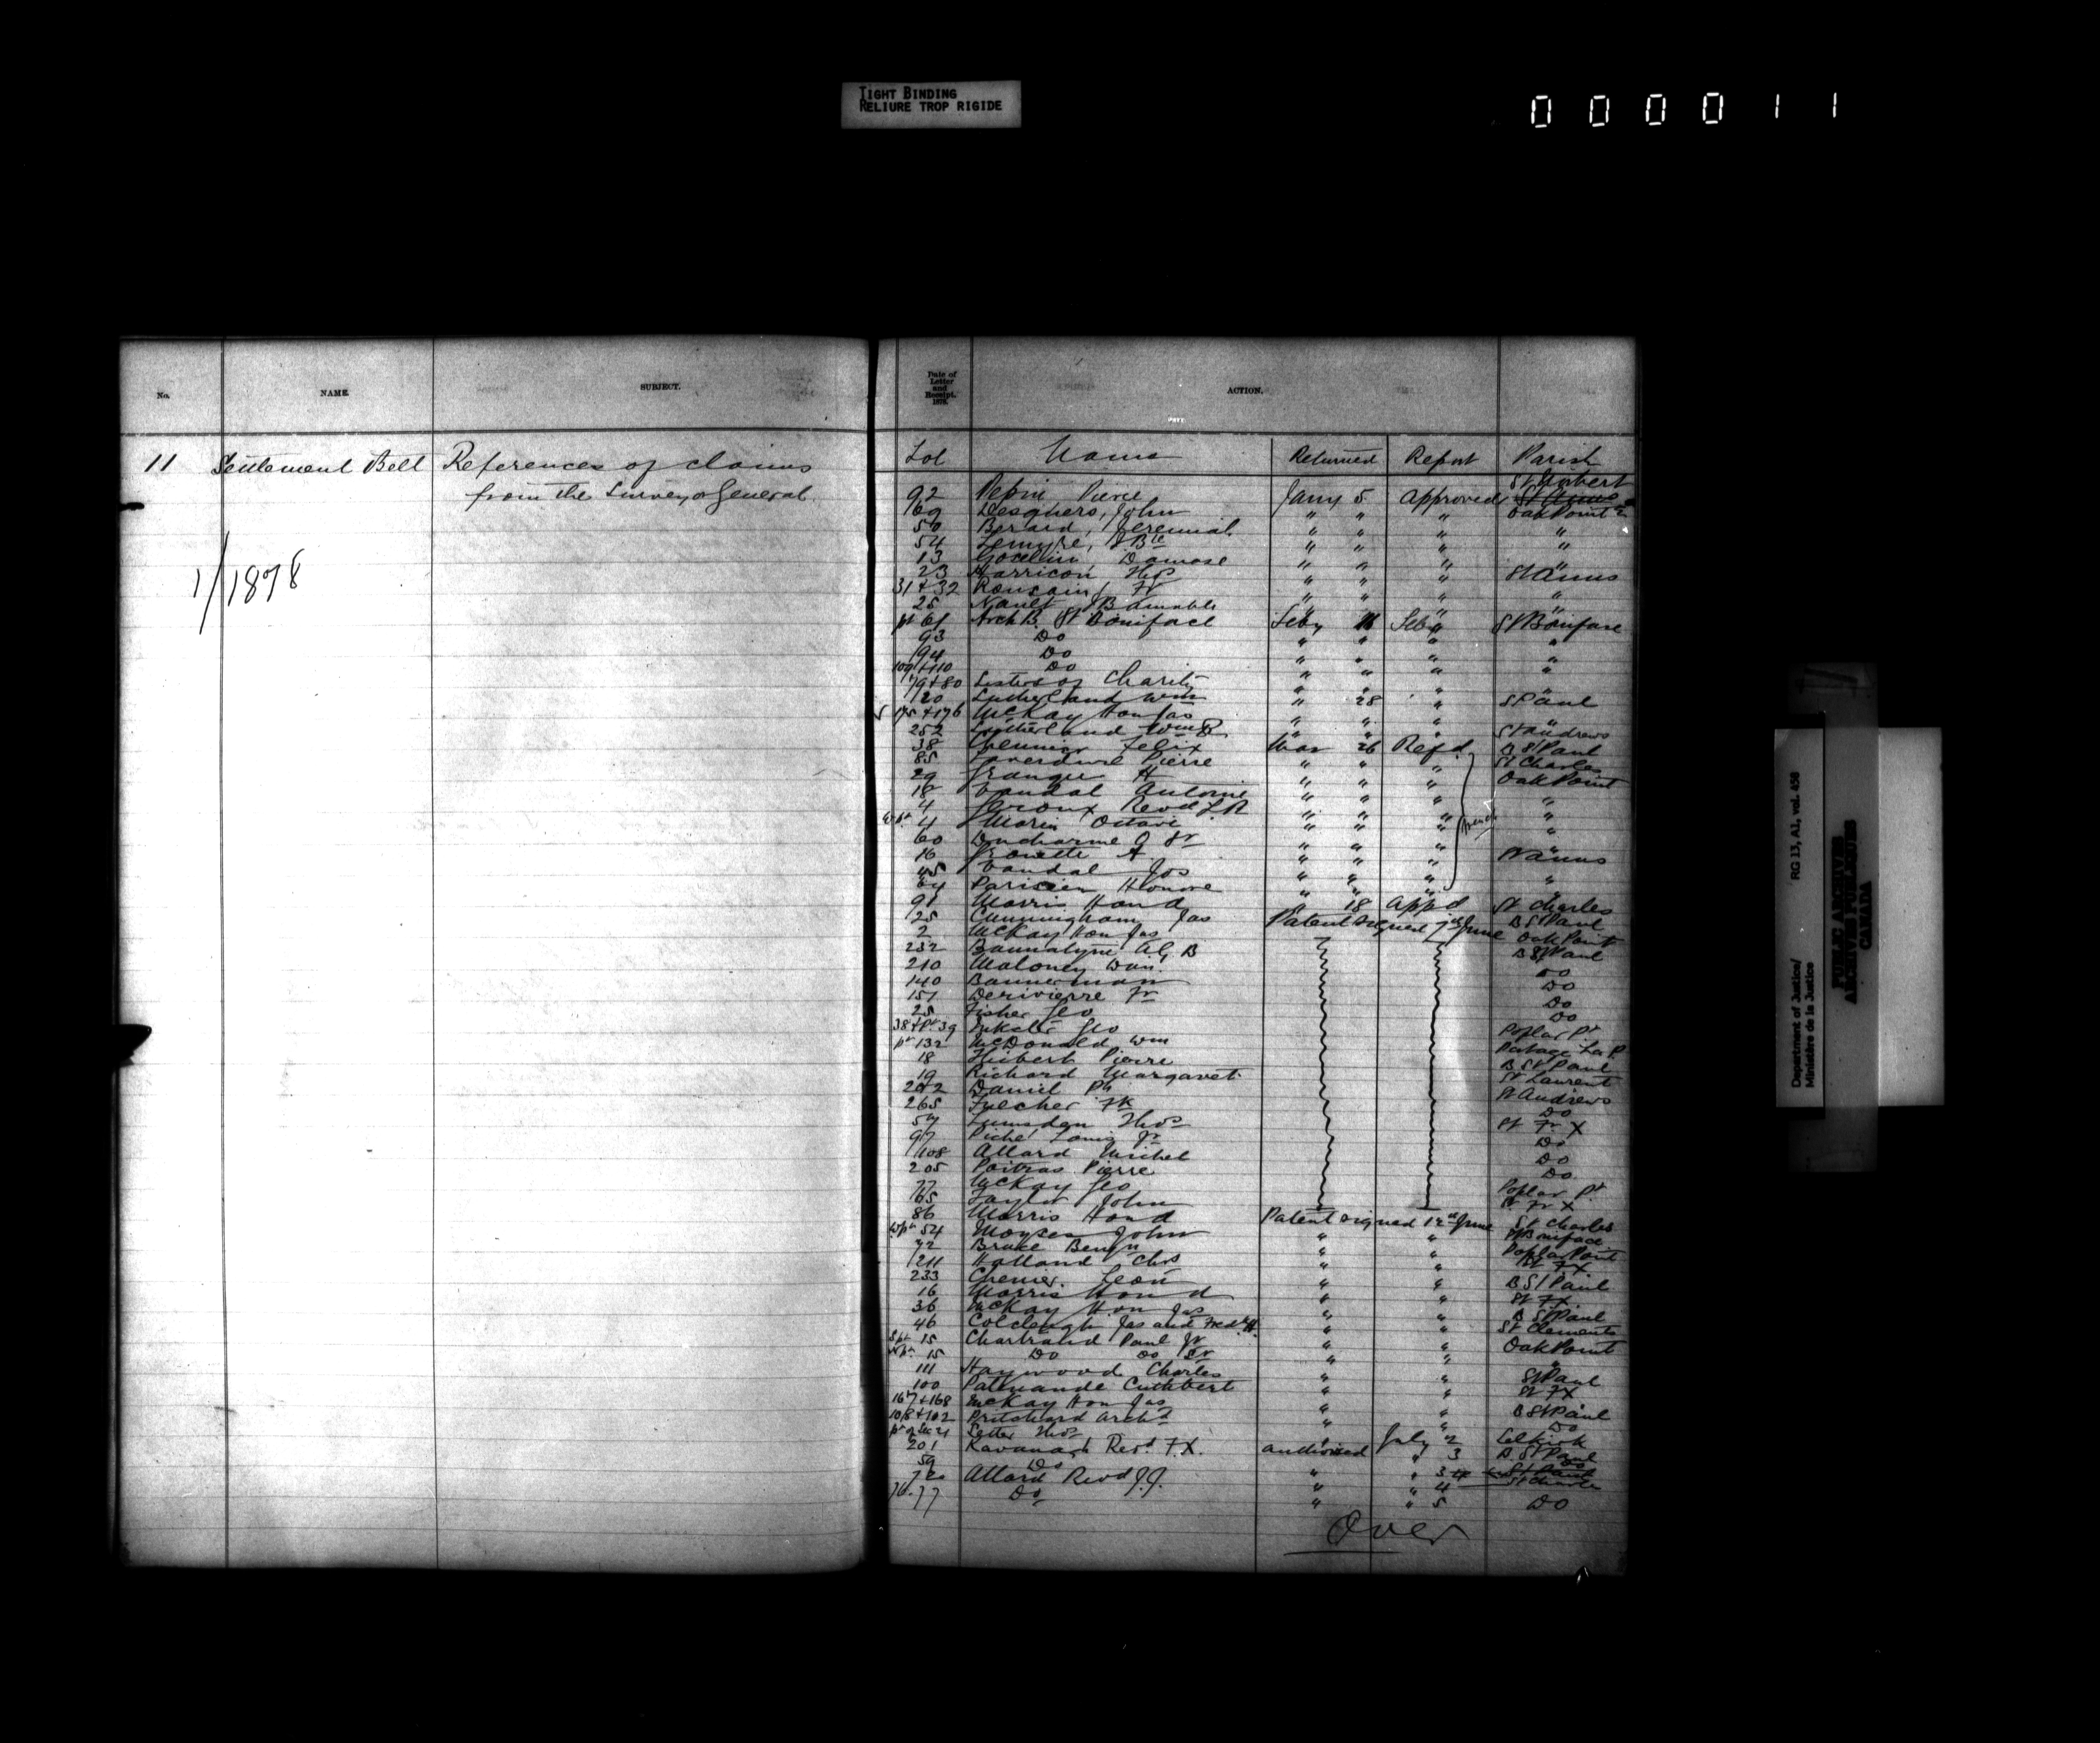 TIGHT BINDING
RELIURE TROP RIGIDE
000011
No.
NAME.
SUBJECT.
Date of
Letter
and
Receipt.
1878.
ACTION.
11 Settlement Belt References of claims
from the Surveyor General.
1/1878
Lot Name Returned Report Parish
St Norbert
92 Pepin Pierre Jany 5 approved St Anns
69 Desghers, John " " " Oak Point
50 Berard, Jeremiah " " " "
54 Lemyre, J Bte " " " "
13 Gocelin Damase " " "
23 Harrison Thos " " " St Anns
31 & 32 Roussain, Fr " " " "
25 Nault J Bamable " " " "
pt 61 Arch B. St Boniface Feby 11 Feby St Boniface
93 Do " " " "
94 Do " " " "
109 & 110 Do " " " "
79 & 80 Sisters of Charity " " " "
120 Sutherland Wm " 28 " St Paul
175 & 176 McKay Hon Jas " " " "
252 Sutherland Wm R " " " St Andrews
38 Chenier Felix Mar 26 Refd. B St Paul
85 Laverdure Pierre " " " St Charles
29 Granger H " " " Oak Point
18 Vandal Antoine " " " "
4 Giroux Revd L R " " " "
4 Morin Octave " " " "
60 Ducharme J Sr " " "
16 A " " " St Anns
45 Vandal Jos " " " "
64 Parisien Honore " " " "
91 Morris Hon d " 18 appd St Charles
125 Cunningham Jas Patent signed 7th June B St Paul
2 McKay Hon Jas Oak Point
232 Bannatyne A G B B St Paul
210 Maloney Dan. Do
140 Bannerman Do
151 Derivierre Fr Do
25 Fisher Geo Do
38 & Pt 39 Inkster Geo Poplar Pt
pt 132 McDonald Wm Portage La P.
18 Hiebert Pierre B St Paul
19 Richard Margaret St Laurent
202 Daniel Ph St Andrews
265 Fulcher Fk Do
57 Lumsden Thos St Fr X
97 Piché Louis Jr Do
108 Allard Michel Do
205 Poitras Pierre Do
77 McKay Geo Poplar Pt
165 Taylor John St Fr X
86 Morris Hon d Patent signed 12th June St Charles
54 Moyses John " " St Boniface
72 Bruce Benjn " " Poplar Point
211 Holland Chrs " " St FX
233 Chenier Leon " " B St Paul
16 Morris Hon d " " St FX
36 McKay Hon Jas " " B St Paul
46 Colcleugh Jas and Fred H. " " St Clements
S pt 15 Chartrand Paul Jr " " Oak Point
N pt 15 Do Do Sr " " "
111 Haywood Charles " " St Paul
100 Patenaude Cuthbert " " St FX
167 & 168 McKay Hon Jas " " B St Paul
Pritchard Archd " " Do
pt of Sec 21 Setter Thos July 2 Selkirk
201 Kavanagh Revd F.X. authorised " 3 B. St Paul
59 Do " 3
Allard Revd J.J. " " 4 St Charles
76-77 Do " " 5 Do
Over
Department of Justice/
Ministère de la Justice
RG 13, A1, vol. 458
PUBLIC ARCHIVES
ARCHIVES PUBLIQUES
CANADA